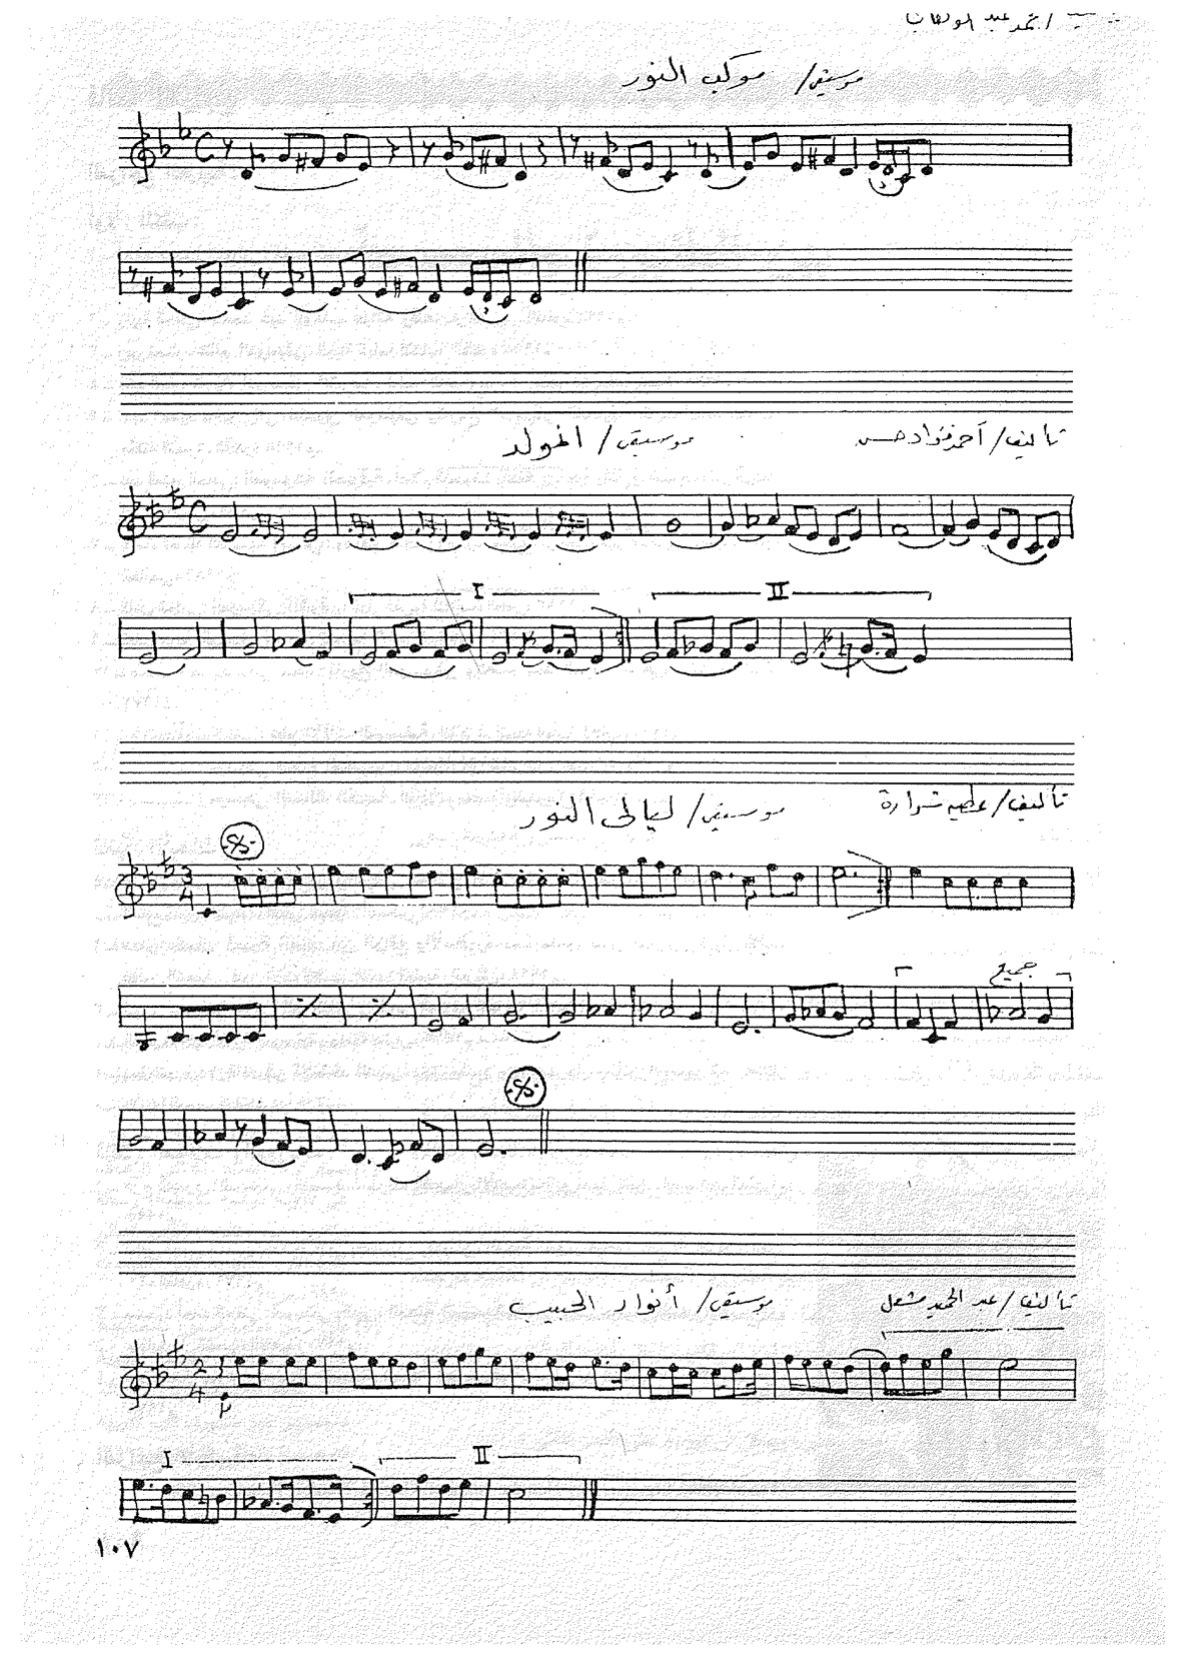 محمد عبد الوهاب
موسيقى/ موكب النور
تأليف/ أحمد فؤاد حسن موسيقى/ المولد
I II
تأليف/ عطيه شرارة موسيقى/ ليالى النور
3
4
جميع
تأليف/ عبد الحميد مشعل موسيقى/ أنوار الحبيب
2
4
I II
١٠٧